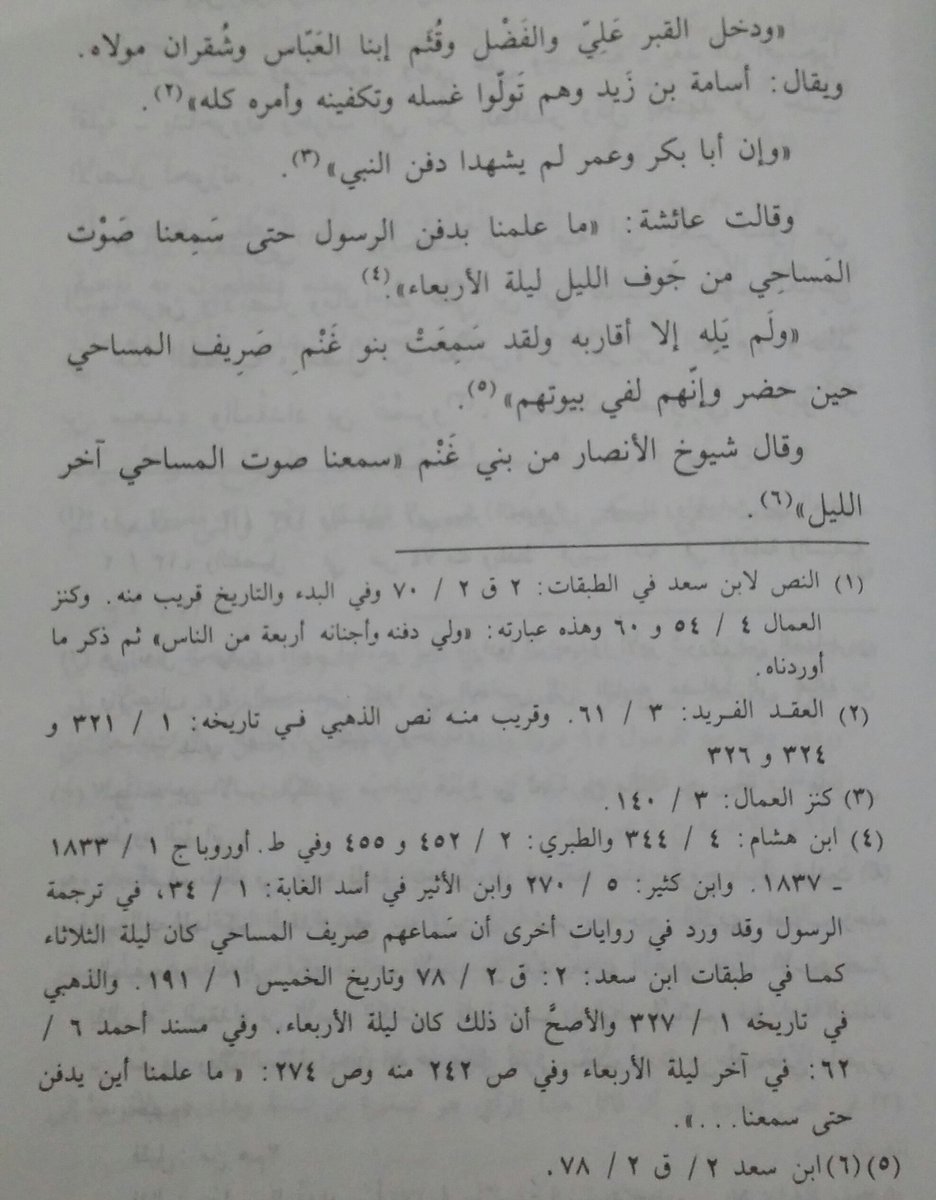 «ودخل القبر عَلِيّ والفَضْل وقُثَم إبنا العَبّاس وشُقران مولاه.
ويقال: أسامة بن زَيد وهم تَولّوا غسله وتكفينه وأمره كله»(٢).
«وإن أبا بكر وعمر لم يشهدا دفن النبي»(٣).
وقالت عائشة: «ما علمنا بدفن الرسول حتى سَمِعنا صَوْت
المَساحِي من جَوف الليل ليلة الأربعاء»(٤).
«ولَم يَلِه إلا أقاربه ولقد سَمِعَتْ بنو غَنْمٍ صَرِيف المساحي
حين حضر وإنّهم لفي بيوتهم»(٥).
وقال شيوخ الأنصار من بني غَنْم «سمعنا صوت المساحي آخر
الليل»(٦).
(١) النص لابن سعد في الطبقات: ٢ ق ٢ / ٧٠ وفي البدء والتاريخ قريب منه. وكنز
العمال ٤ / ٥٤ و ٦٠ وهذه عبارته: «ولي دفنه وأجنانه أربعة من الناس» ثم ذكر ما
أوردناه.
(٢) العقد الفريد: ٣ / ٦١. وقريب منه نص الذهبي في تاريخه: ١ / ٣٢١ و
٣٢٤ و ٣٢٦
(٣) كنز العمال: ٣ / ١٤٠.
(٤) ابن هشام: ٤ / ٣٤٤ والطبري: ٢ / ٤٥٢ و ٤٥٥ وفي ط. أوروبا ج ١ / ١٨٣٣
ـ ١٨٣٧. وابن كثير: ٥ / ٢٧٠ وابن الأثير في أسد الغابة: ١ / ٣٤، في ترجمة
الرسول وقد ورد في روايات أخرى أن سَماعهم صريف المساحي كان ليلة الثلاثاء
كما في طبقات ابن سعد: ٢: ق ٢ / ٧٨ وتاريخ الخميس ١ / ١٩١. والذهبي
في تاريخه ١ / ٣٢٧ والأصحَّ أن ذلك كان ليلة الأربعاء. وفي مسند أحمد ٦ /
٦٢: في آخر ليلة الأربعاء وفي ص ٢٤٢ منه وص ٢٧٤: « ما علمنا أين يدفن
حتى سمعنا...».
(٥)(٦) ابن سعد ٢ / ق ٢ / ٧٨.